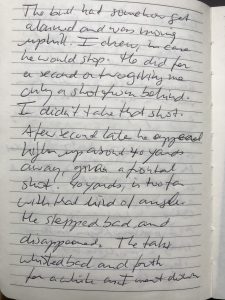 The bull had somehow got
alarmed and was moving
uphill. I drew, in case
he would stop. He did for
a second or two giving me
only a shot from behind.
I didn't take that shot.
A few second later he appeared
higher up about 40 yards
away, given a frontal
shot. 40 yards, is too far
with that kind of angle.
He stepped bad and
disappeared. The tahr
whistled bad and forth
for a while and I went down